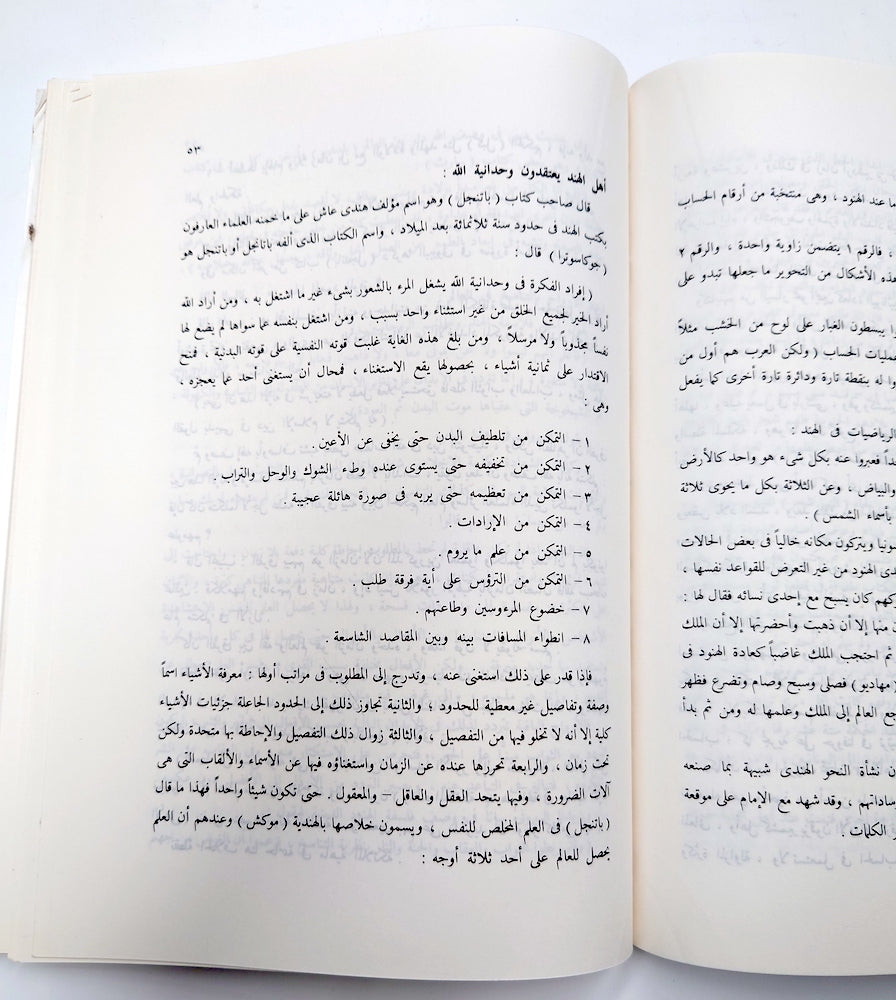 ما عند الهنود ، وهى منتخبة من أرقام الحساب
، فالرقم ١ يتضمن زاوية واحدة ، والرقم ٢
هذه الأشكال من التحوير ما جعلها تبدو على
يبسطون الغبار على لوح من الخشب مثلاً
عمليات الحساب ( ولكن العرب هم أول من
له بنقطة تارة ودائرة تارة أخرى كما يفعل
الرياضيات فى الهند :
فعبروا عنه بكل شىء هو واحد كالأرض
والبياض ، وعن الثلاثة بكل ما يحوى ثلاثة
بأسماء الشمس ) .
ويتركون مكانه خالياً فى بعض الحالات
الهنود من غير التعرض للقواعد نفسها ،
كان يسبح مع إحدى نسائه فقال لها :
منها إلا أن ذهبت وأحضرتها إلا أن الملك
ثم احتجب الملك غاضباً كعادة الهنود فى
مهاديو ) فصلى وسبح وصام وتضرع فظهر
العالم إلى الملك وعلمها له ومن ثم بدأ
نشأة النحو الهندى شبيهة بما صنعه
ساداتهم ، وقد شهد مع الإمام على موقعة
الكلمات .
٥٣
أهل الهند يعتقدون وحدانية الله :
قال صاحب كتاب ( باتنجل ) وهو اسم مؤلف هندى عاش على ما خمنه العلماء العارفون
بكتب الهند فى حدود سنة ثلاثمائة بعد الميلاد ، واسم الكتاب الذى ألفه باتانجل أو باتنجل هو
( جوكاسوترا ) قال :
( إفراد الفكرة فى وحدانية الله يشغل المرء بالشعور بشىء غير ما اشتغل به ، ومن أراد الله
أراد الخير لجميع الخلق من غير استثناء واحد بسبب ، ومن اشتغل بنفسه عما سواها لم يضع لها
نفساً مجذوباً ولا مرسلاً ، ومن بلغ هذه الغاية غلبت قوته النفسية على قوته البدنية ، فمنح
الاقتدار على ثمانية أشياء ، بحصولها يقع الاستغناء ، فمحال أن يستغنى أحد عما يعجزه ،
وهى :
١ – التمكن من تلطيف البدن حتى يخفى عن الأعين .
٢ – التمكن من تخفيفه حتى يستوى عنده وطء الشوك والوحل والتراب .
٣ – التمكن من تعظيمه حتى يريه فى صورة هائلة عجيبة .
٤ – التمكن من الإرادات .
٥ – التمكن من علم ما يروم .
٦ – التمكن من الترؤس على أية فرقة طلب .
٧ – خضوع المرءوسين وطاعتهم .
٨ – انطواء المسافات بينه وبين المقاصد الشاسعة .
فإذا قدر على ذلك استغنى عنه ، وتدرج إلى المطلوب فى مراتب أولها : معرفة الأشياء اسماً
وصفة وتفاصيل غير معطية للحدود ؛ والثانية تجاوز ذلك إلى الحدود الجاعلة جزئيات الأشياء
كلية إلا أنه لا تخلو فيها من التفصيل ، والثالثة زوال ذلك التفصيل والإحاطة بها متحدة ولكن
تحت زمان ، والرابعة تحررها عنده عن الزمان واستغناؤه فيها عن الأسماء والألقاب التى هى
آلات الضرورة ، وفيها يتحد العقل والعاقل – والمعقول . حتى تكون شيئاً واحداً فهذا ما قال
( باتنجل ) فى العلم المخلص للنفس ، ويسمون خلاصها بالهندية ( موكش ) وعندهم أن العلم
يحصل للعالم على أحد ثلاثة أوجه :